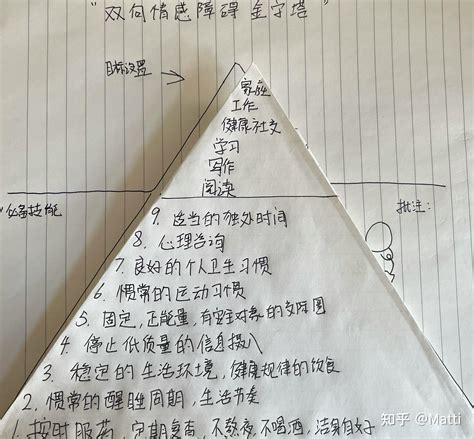 "双向情感障碍金字塔"
目标设置
家庭
工作
健康社交
学习
写作
阅读
"必备技能
批注:
9. 适当的独处时间
8. 心理咨询
7. 良好的个人卫生习惯
6. 惯常的运动习惯
5. 固定,正能量,有安全对象的交际圈
4. 停止低质量的信息摄入
3. 稳定的生活环境,健康规律的饮食
2. 惯常的醒睡周期,生活节奏
1. 按时服药,定期复查,不熬夜不喝酒,洁身自好
知乎 @Matti